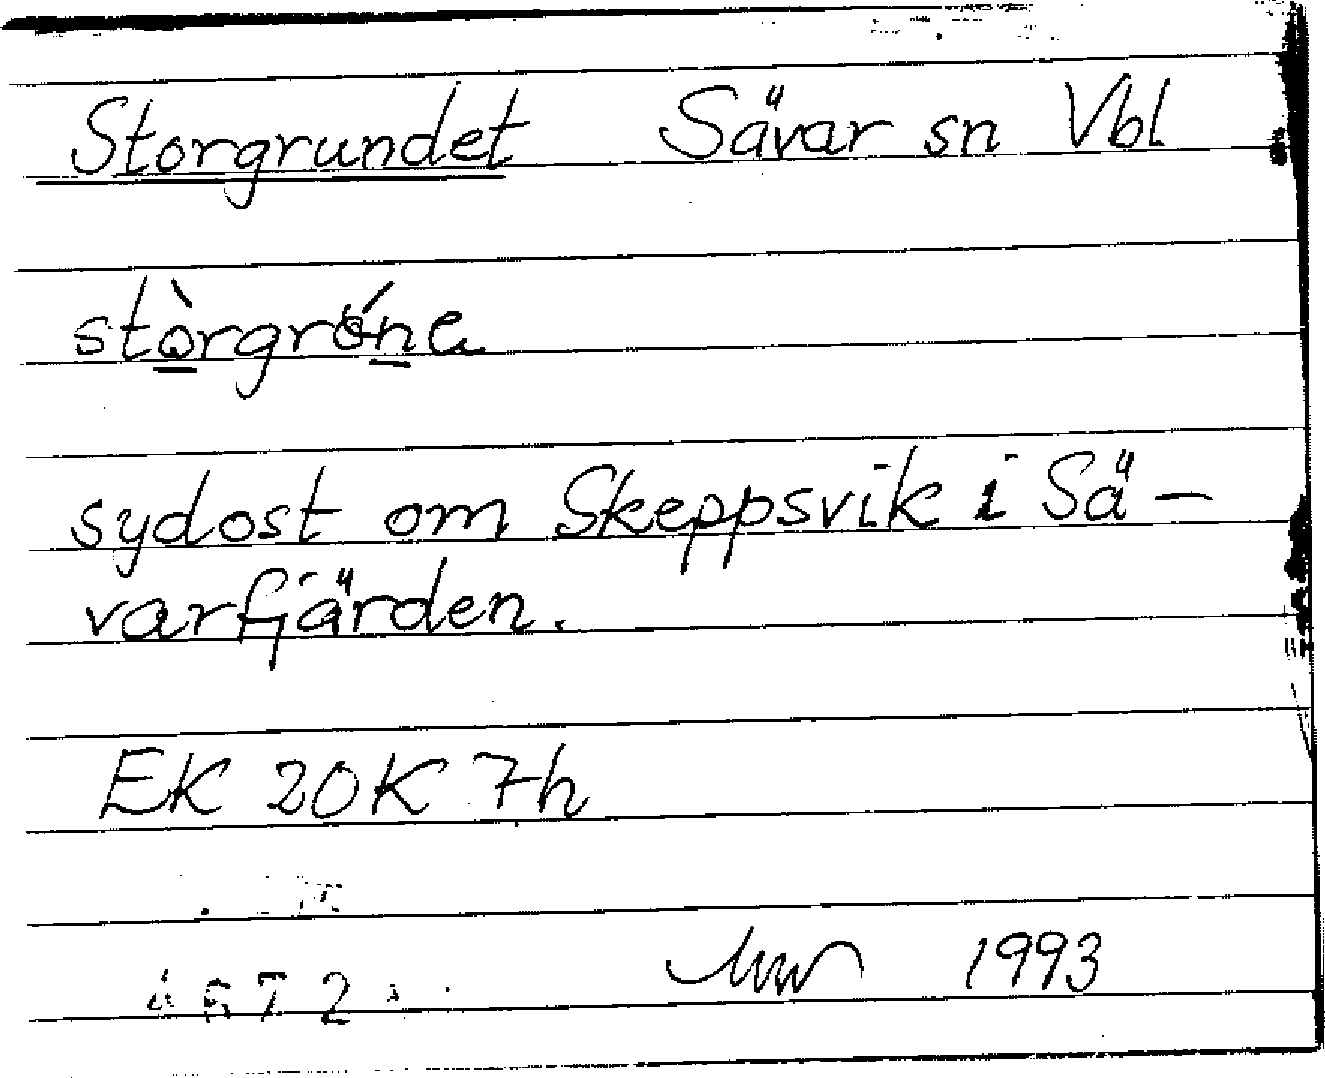 Storgrundet Sävar sn Vbl
stòrgróna
sydost om Skeppsvik i Sä-
varfjärden.
EK 20K 7h
1993